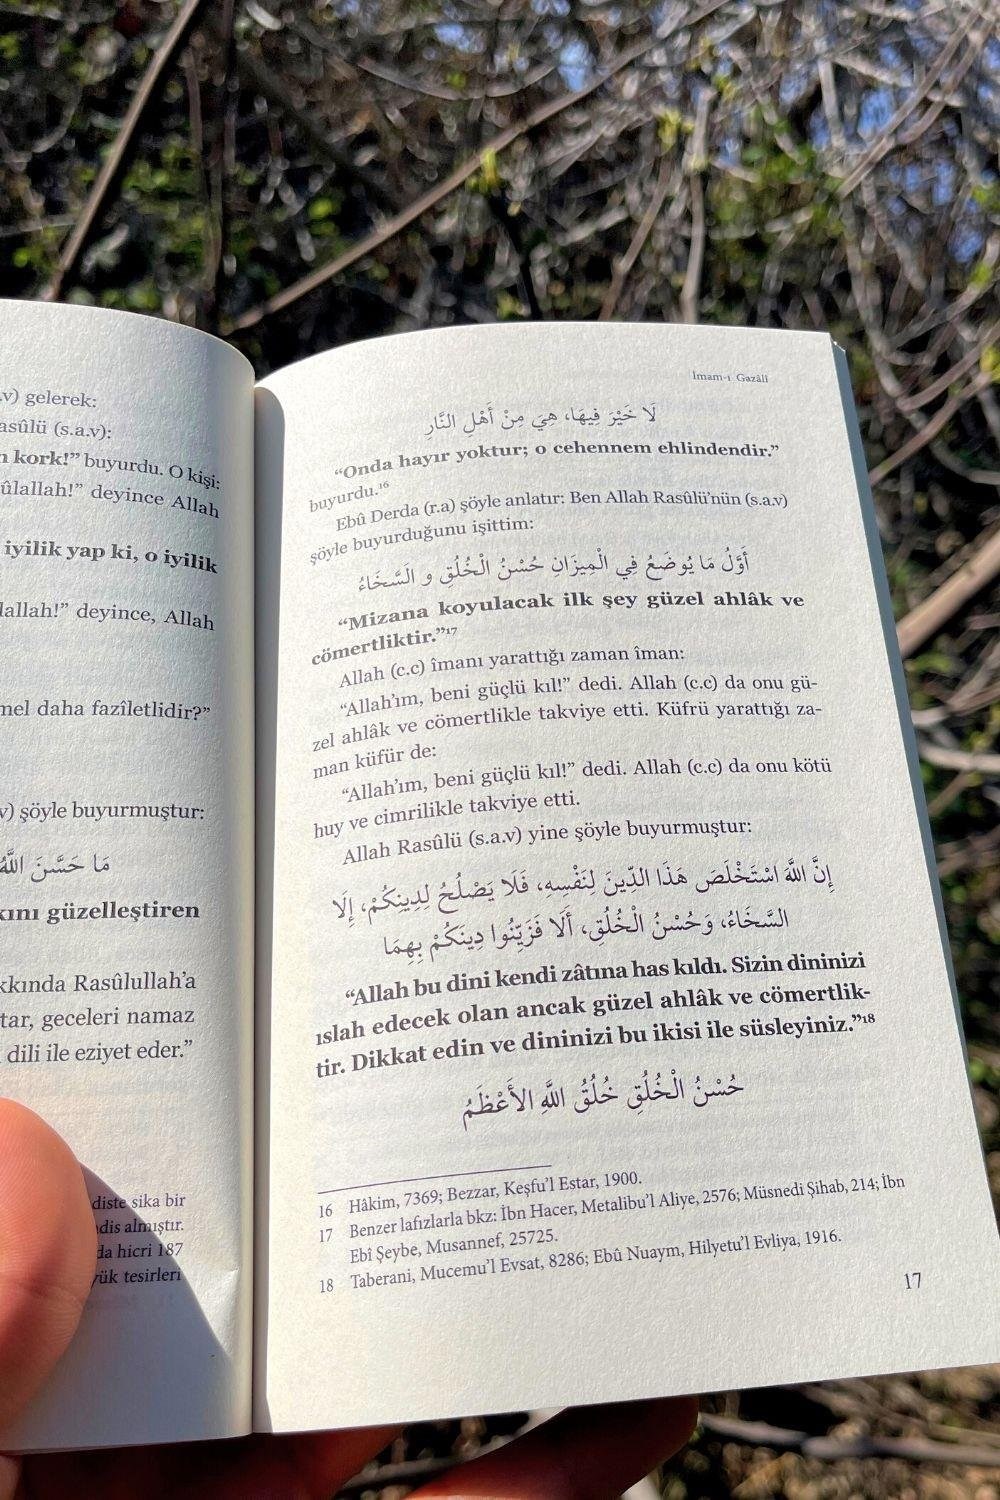 .v) gelerek:
asûlü (s.a.v):
n kork!” buyurdu. O kişi:
ûlallah!” deyince Allah
iyilik yap ki, o iyilik
lallah!” deyince, Allah
mel daha fazîletlidir?”
v) şöyle buyurmuştur:
مَا حَسَّنَ اللَّهُ
kını güzelleştiren
kkında Rasûlullah’a
tar, geceleri namaz
dili ile eziyet eder.”
diste sika bir
dis almıştır.
da hicri 187
yük tesirleri
İmam-ı Gazâlî
لَا خَيْرَ فِيهَا، هِيَ مِنْ أَهْلِ النَّارِ
“Onda hayır yoktur; o cehennem ehlindendir.”
buyurdu.16
Ebû Derda (r.a) şöyle anlatır: Ben Allah Rasûlü’nün (s.a.v)
şöyle buyurduğunu işittim:
أَوَّلُ مَا يُوضَعُ فِي الْمِيزَانِ حُسْنُ الْخُلُقِ و السَّخَاءُ
“Mizana koyulacak ilk şey güzel ahlâk ve
cömertliktir.”17
Allah (c.c) îmanı yarattığı zaman îman:
“Allah’ım, beni güçlü kıl!” dedi. Allah (c.c) da onu gü-
zel ahlâk ve cömertlikle takviye etti. Küfrü yarattığı za-
man küfür de:
“Allah’ım, beni güçlü kıl!” dedi. Allah (c.c) da onu kötü
huy ve cimrilikle takviye etti.
Allah Rasûlü (s.a.v) yine şöyle buyurmuştur:
إِنَّ اللَّهَ اسْتَخْلَصَ هَذَا الدِّينَ لِنَفْسِهِ، فَلَا يَصْلُحُ لِدِينِكُمْ، إِلَا
السَّخَاءُ، وَحُسْنُ الْخُلُقِ، أَلَا فَزَيِّنُوا دِينَكُمْ بِهِمَا
“Allah bu dini kendi zâtına has kıldı. Sizin dininizi
ıslah edecek olan ancak güzel ahlâk ve cömertlik-
tir. Dikkat edin ve dininizi bu ikisi ile süsleyiniz.”18
حُسْنُ الْخُلُقِ خُلُقُ اللَّهِ الأَعْظَمُ
16 Hâkim, 7369; Bezzar, Keşfu’l Estar, 1900.
17 Benzer lafızlarla bkz: İbn Hacer, Metalibu’l Aliye, 2576; Müsnedi Şihab, 214; İbn
Ebî Şeybe, Musannef, 25725.
18 Taberani, Mucemu’l Evsat, 8286; Ebû Nuaym, Hilyetu’l Evliya, 1916.
17